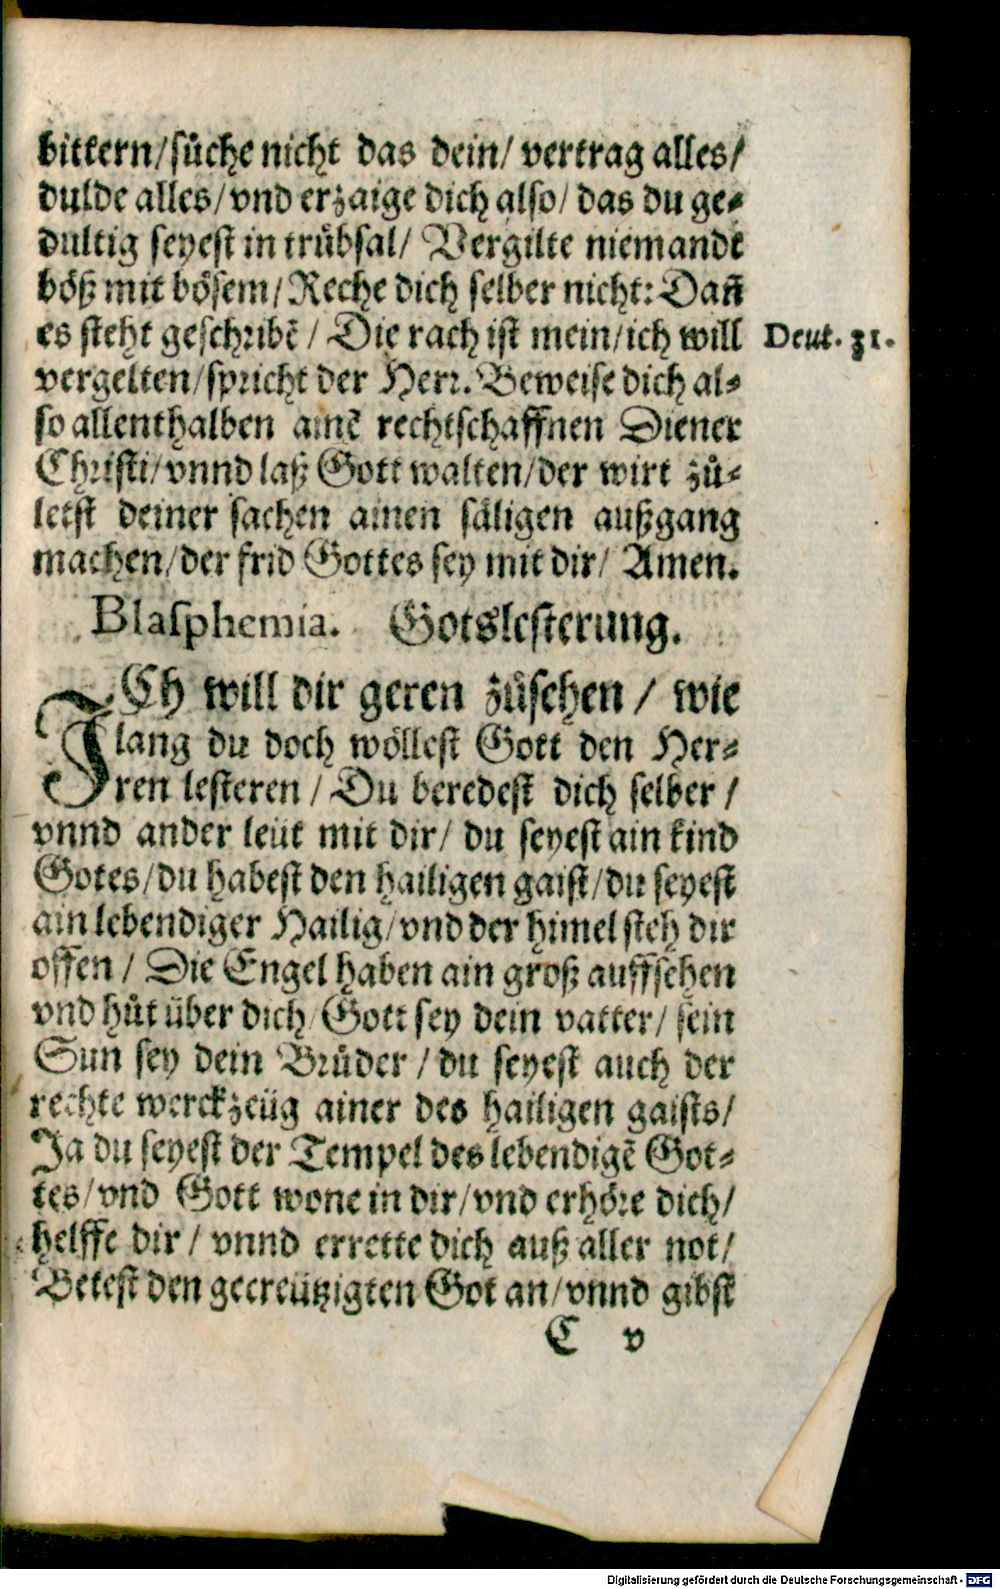 bittern/sůche nicht das dein/ vertrag alles/
dulde alles/vnd erzaige dich also/ das du ge⸗
dultig seyest in trübsal/ Vergilte niemandt
böß mit bösem/Reche dich selber nicht: Dañ
es steht geschribẽ / Die rach ist mein/ich will
Deut. 31.
vergelten/spricht der Herr. Beweise dich al⸗
so allenthalben ainẽ rechtschaffnen Diener
Christi/vnnd laß Gott walten/der wirt zů⸗
letst deiner sachen ainen säligen außgang
machen/der frid Gottes sey mit dir/ Amen.
Blasphemia. Gotslesterung.
ICh will dir geren zůsehen / wie
lang du doch wöllest Gott den Her⸗
ren lesteren / Du beredest dich selber /
vnnd ander leüt mit dir/ du seyest ain kind
Gotes/du habest den hailigen gaist/du seyest
ain lebendiger Hailig/vnd der himel steh dir
offen / Die Engel haben ain groß auffsehen
vnd hůt über dich/ Gott sey dein vatter/ sein
Sun sey dein Brůder / du seyest auch der
rechte werckzeüg ainer des hailigen gaists/
Ja du seyest der Tempel des lebendigẽ Got⸗
tes/vnd Gott wone in dir/vnd erhöre dich/
helffe dir / vnnd errette dich auß aller not/
Betest den gecreützigten Got an/vnnd gibst
C v
Digitalisierung gefördert durch die Deutsche Forschungsgemeinschaft - DFG